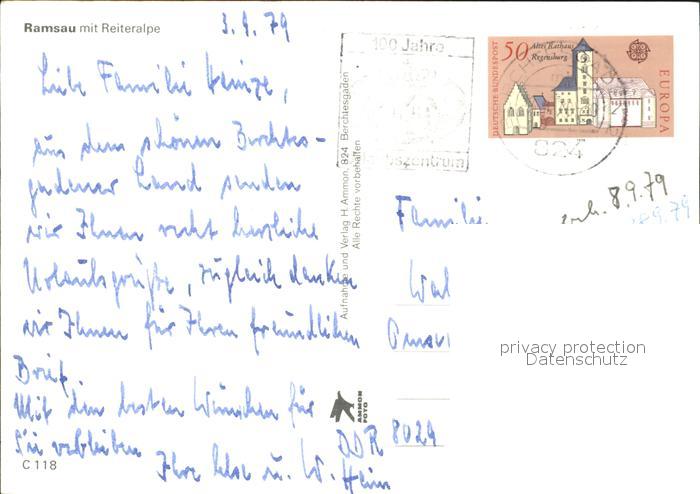 Ramsau mit Reiteralpe
3.9.79
Liebe Familie Heinze,
aus dem schönen Berchtes-
gadener Land senden
wir Ihnen recht herzliche
Urlaubsgrüße, zugleich danken
wir Ihnen für Ihren freundlichen
Brief.
Mit den besten Wünschen für
Sie verbleiben
Ihre u. W.
C 118
Aufnahme und Verlag H. Ammon, 824 Berchtesgaden
Alle Rechte vorbehalten
AMMON
FOTO
100 Jahre
824
DEUTSCHE BUNDESPOST
50
Altes Rathaus
Regensburg
EUROPA
8.9.79
Familie
Wal
DDR 8029
privacy protection
Datenschutz